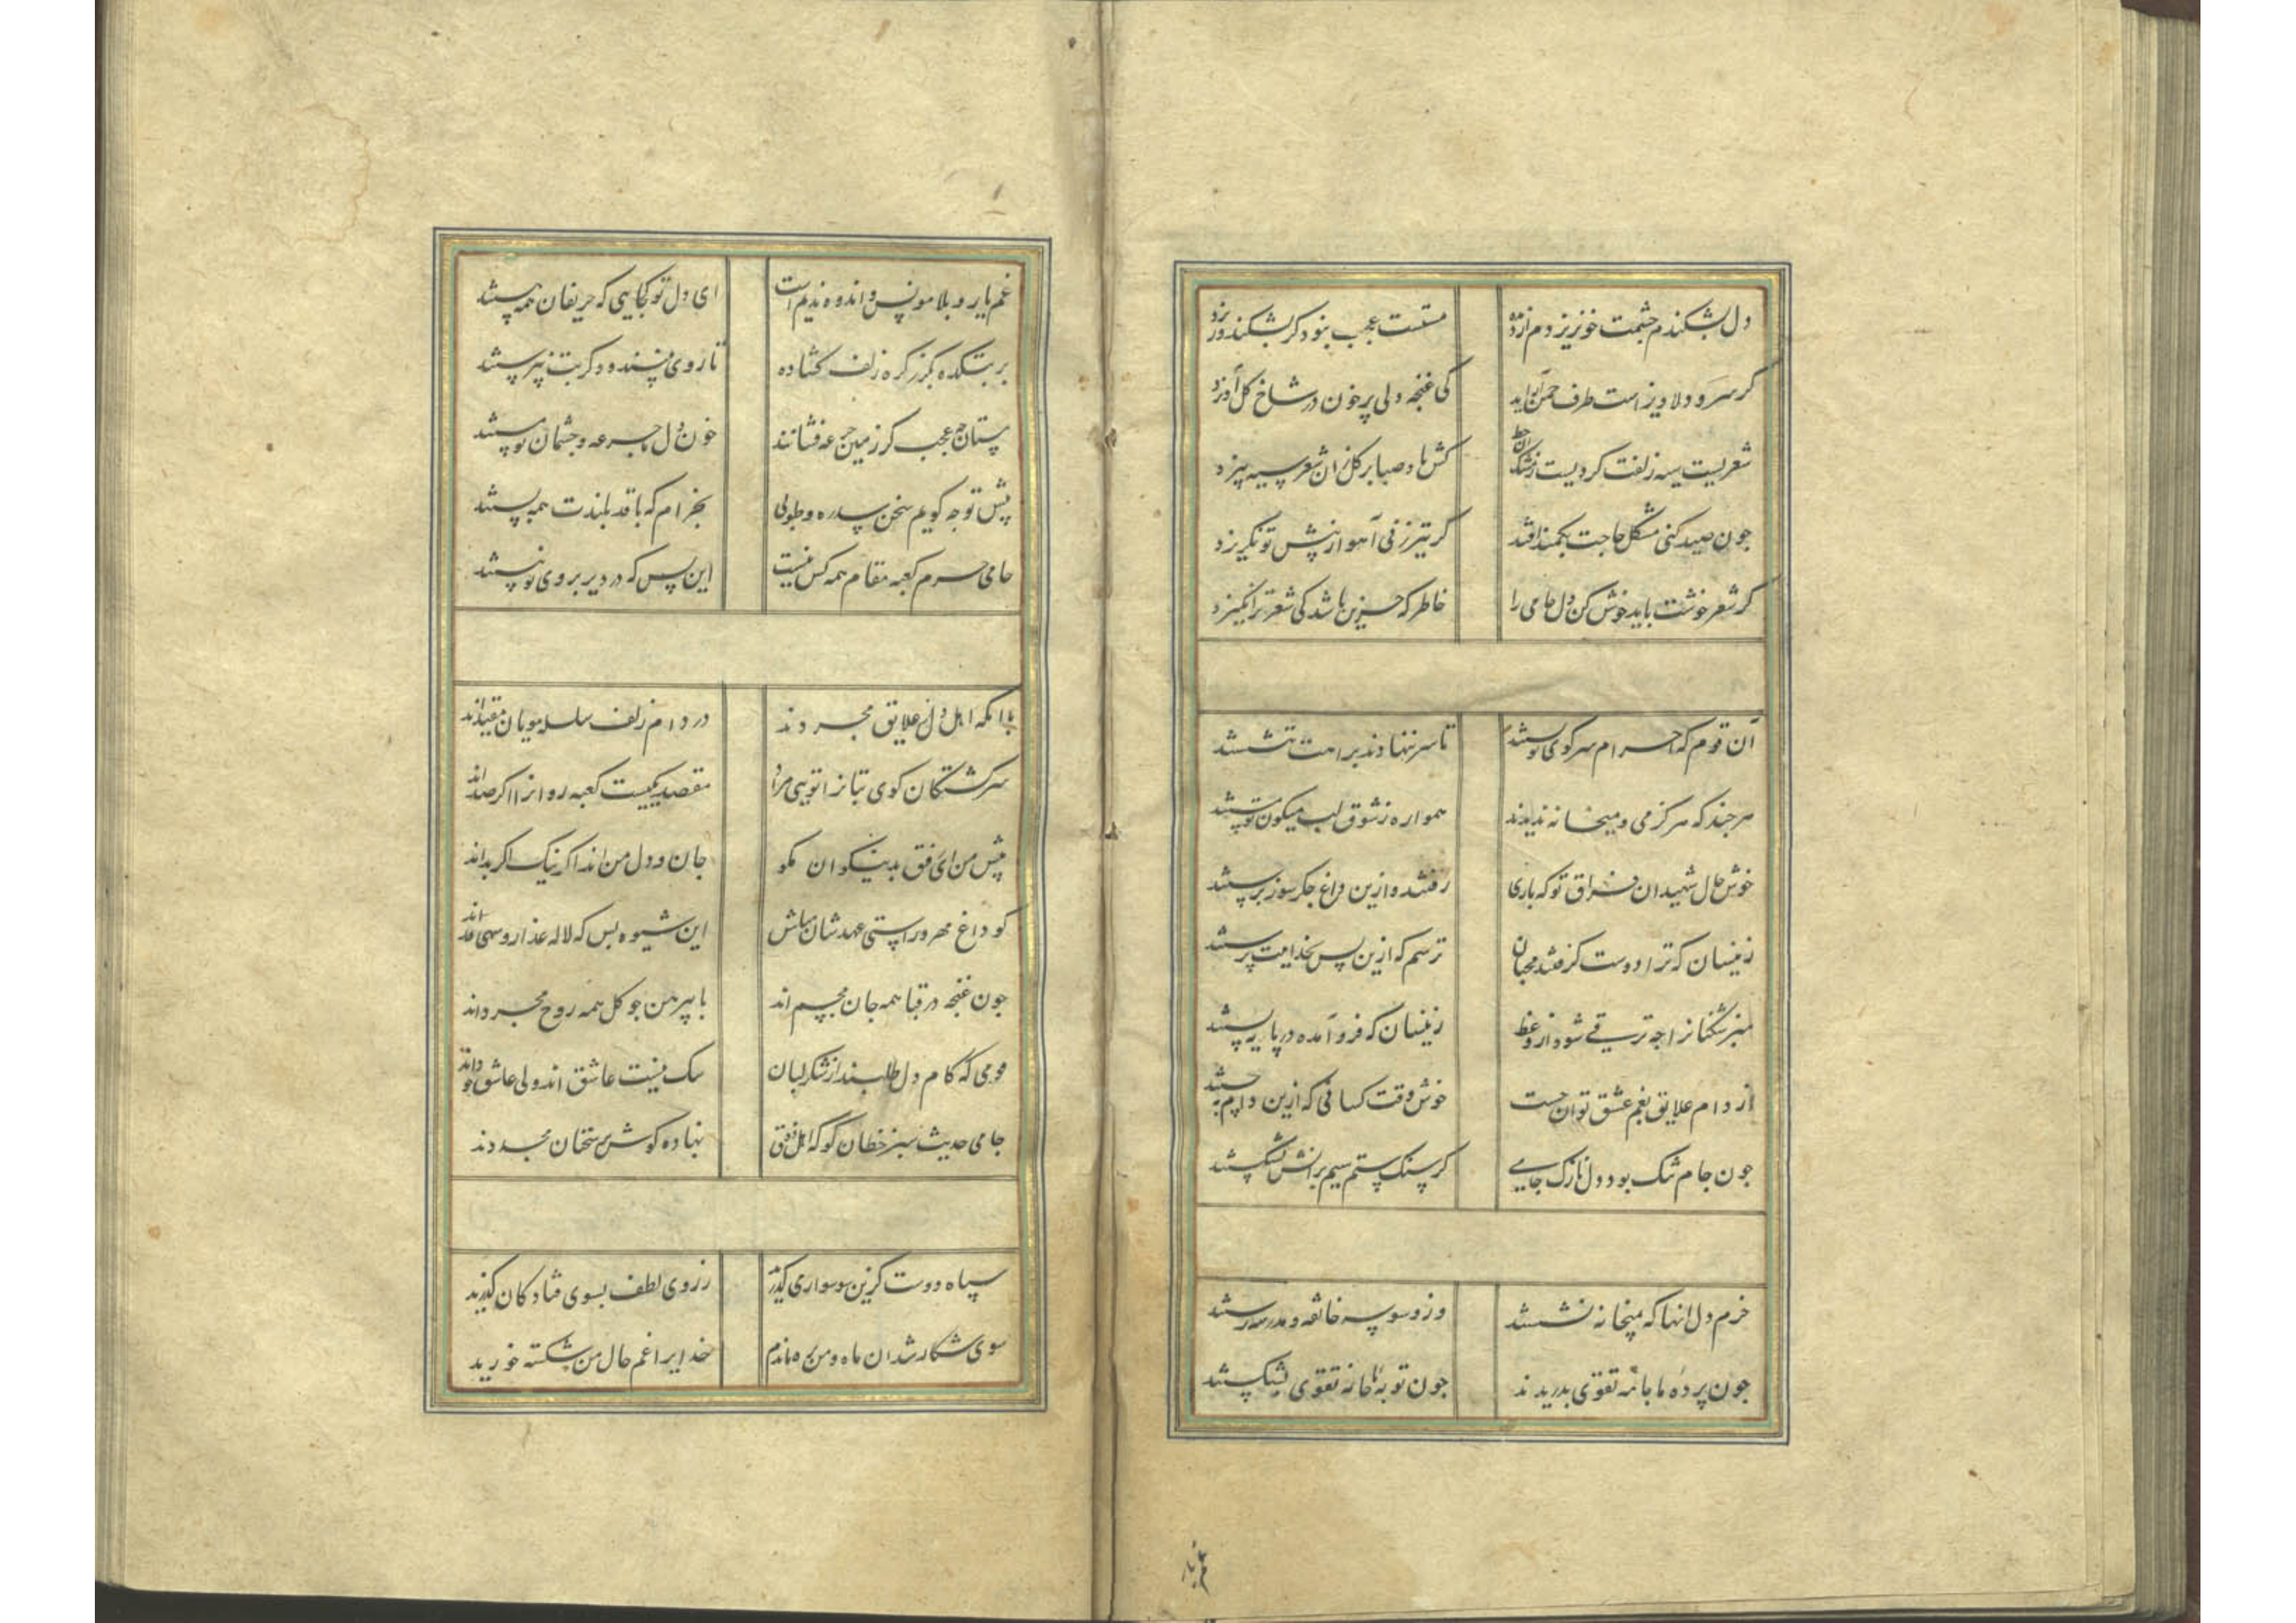 دل بشکندم چشمت خونریزدم از مژه مستست عجب نبود کر بشکند ور ریزد
کر سرو دلاویز است طرف چمن آراید کی غنچه دلی پر خون در شاخ کل آویزد
شعریست سیه زلفت کردیست ز مشک آن خط کش باد صبا بر کل زان شعر سیه بیزد
جون صید کنی مشکل حاجت بکمند افتد کر تیر زنی آهو از پیش تو نکریزد
کر شعر خوشت باید خوش کن دل جامی را خاطر که حزین باشد کی شعر تر انکیزد
آن قوم که احرام سر کوی تو بستند تا سر ننهادند براهت ننشستند
هر جند که هرکز می و میخانه ندیدند همواره ز شوق لب میکون تو مستند
خوش حال شهیدان فراق تو که باری رفتند و ازین داغ جکر سوز برستند
زینسان که ترا دوست کرفتند محبان ترسم که ازین پس بخدائیت پرستند
منبر شکنانرا جه ترقی شود از وعظ زینسان که فرو آمده در پایه پستند
از دام علایق بغم عشق توان جست خوش وقت کسانی که ازین دام بجستند
جون جام تنک بود دل نازک جامی کز سنک ستم سیم برانش بشکستند
خرم دل انها که بمیخانه نشستند وز وسوسه خانقه و مدرسه رستند
جون پرده ما جامه تقوی بدریدند جون توبه ما خانه تقوی بشکستند
غم یار و بلا مونس و اندوه ندیم است ای دل تو کجایی که حریفان همه هستند
بر بتکده بکذر کره زلف کشاده تا روی نپسندد دکر بت نپرستند
مستان جه عجب کر بزمین جرعه فشانند خون دل ما جرعه و جشمان تو مستند
پیش تو جه کویم سخن سدره و طوبی بخرام که با قد بلندت همه پستند
جامی حرم کعبه مقام همه کس نیست این بس که در دیر بروی تو نبستند
با انکه اهل دل ز علایق مجردند در دام زلف سلسله مویان مقیدند
سرکشتکان کوی بتانرا تویی مراد مقصد یکیست کعبه روانرا اکر صدند
پیش من ای رفیق بد نیکوان مکو جان و دل من اند اکر نیک اکر بداند
کو داغ مهر و راستی عهدشان مباش این شیوه بس که لاله عذار و سهی قداند
جون غنجه در قبا همه جان مجسم اند با پیرهن جو کل همه روح مجرداند
قومی که کام دل طلبند از شکرلبان شک نیست عاشق اند ولی عاشق خوداند
جامی حدیث سبز خطان کو که اهل ذوق بنهاده کوش بر سخنان مجددند
سپاه دوست کزین سو سواره می کذرند ز روی لطف بسوی فتادکان نکرند
سوی شکار شد ان ماه و من بره ماندم خدایرا غم حال من شکسته خورید
غم یار